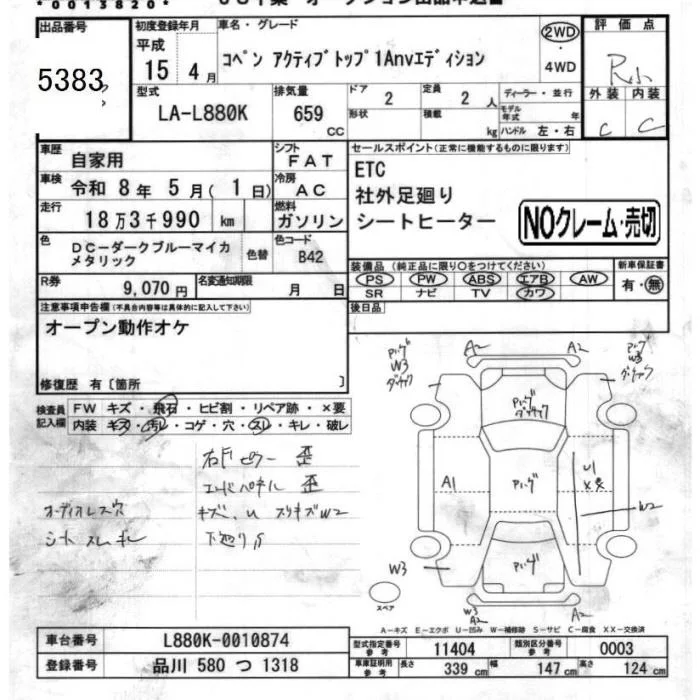 *0013820*
出品番号
5383
初度登録年月
平成
15 年 4 月
車名・グレード
コペン アクティブトップ1Anvエディション
2WD
・
4WD
評価点
R小
外装 内装
C C
型式
LA-L880K
排気量
659
CC
ドア
2
定員
2 人
形状
積載
kg
ディーラー・並行
モデル年式 年
ハンドル 左・右
車歴
自家用
シフト
FAT
車検
令和 8年 5月( 1日)
冷房
AC
走行
18万3千990 km
燃料
ガソリン
色
DC-ダークブルーマイカメタリック
色替
色コード
B42
R券
9,070 円
名変通知期限
月 日
セールスポイント(正常に機能するものに限ります)
ETC
社外足廻り
シートヒーター
NOクレーム・売切
装備品 (純正品に限り○をつけてください)
PS PW ABS エアB AW
SR ナビ TV カワ
新車保証書
有・無
後日品
注意事項申告欄(不具合内容等は具体的に記入して下さい)
オープン動作オケ
修復歴 有〔箇所 〕
検査員記入欄
FW キズ・飛石・ヒビ割・リペア跡・×要
内装 キズ・汚レ・コゲ・穴・スレ・キレ・破レ
右Fピラー 歪
エンドパネル 歪
オーディオレス穴
キズ、U スリキズW2
下廻りS
A2
A2
W3
W3
A1
U1
W2
W3
W3
A2
A2
スペア
A-キズ E-エクボ U-凹み W-補修跡 S-サビ C-腐食 XX-交換済
車台番号
L880K-0010874
登録番号
品川 580 つ 1318
型式指定番号
参考
11404
類別区分番号
参考
0003
車庫証明用
参考
長さ
339 cm
幅
147 cm
高さ
124 cm